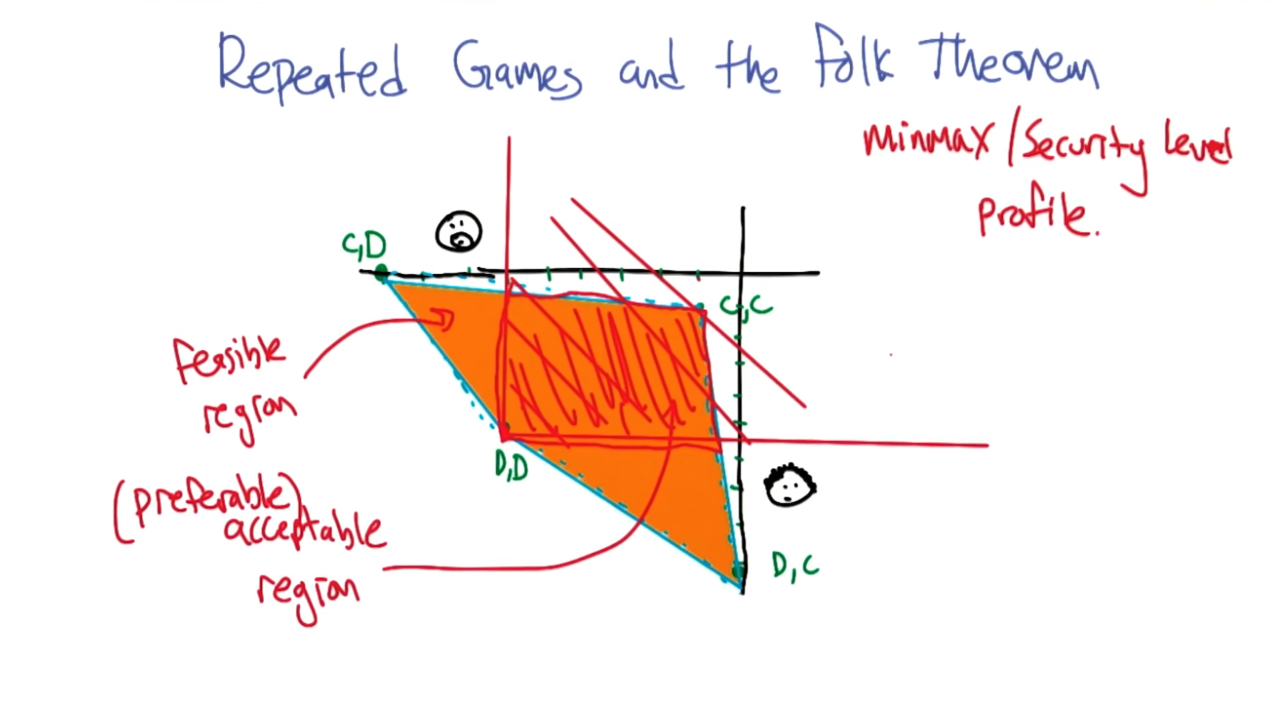 Repeated Games and the Folk Theorem
minmax/Security level
profile.
C,D
C,C
feasible
region
D,D
(preferable)
acceptable
region
D,C